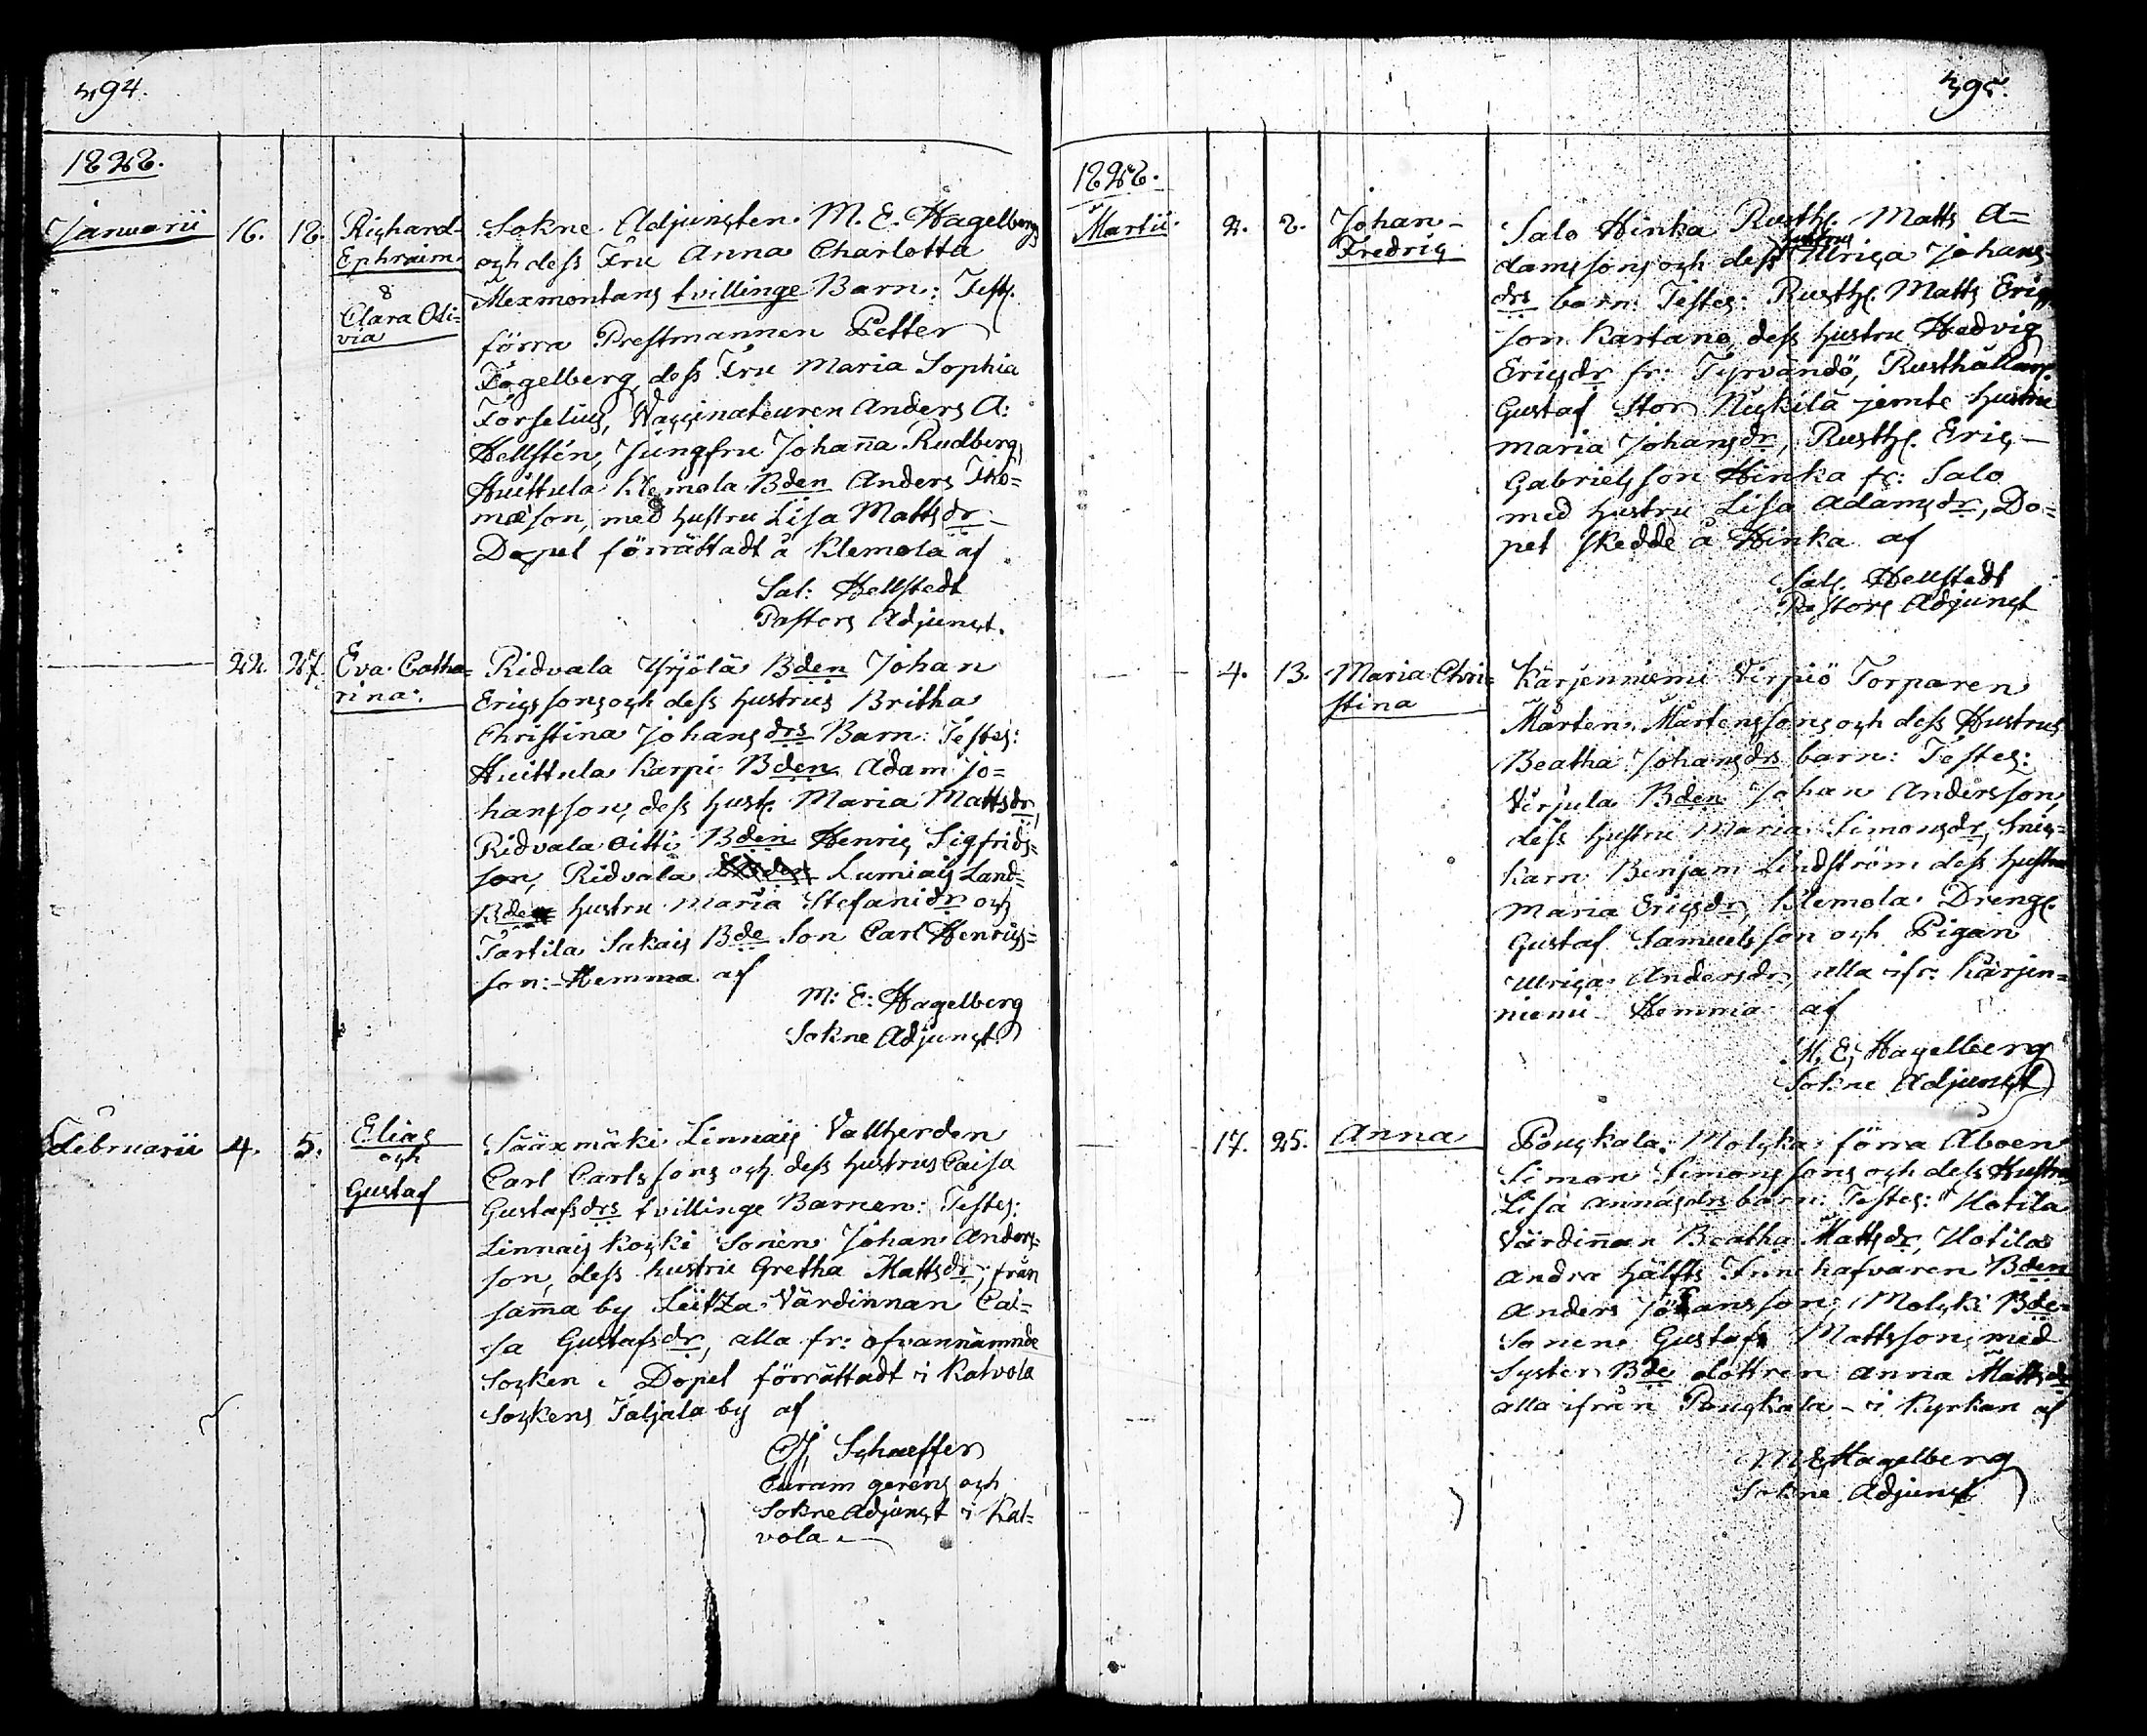 394.
1828.
Januarii 16. 18. Richard-
Ephraim.
&
Clara Oli=
via
Sokne Adjuncten M. E. Hagelbergs
och dess Fru Anna Charlotta
Mexmontans tvillinge Barn: Test.
förra Prestmannen Petter
Fogelberg, dess Fru Maria Sophia
Forselius, Vaccinateuren Anders A:
Hellstén, Jungfru Johan̄a Rudberg,
Huittula Klemola Bden Anders Tho=
mæson, med hustru Lisa Mattsdr
Dopet förrättadt å Klemola af
Sal: Hellstedt
Pastors Adjunct.
22. 27. Eva Catha=
rina.
Ridvala Yrjölä Bden Johan
Ericssons och dess hustrus Britha
Christina Johansdrs Barn: Testes:
Huittula Karpi Bden Adam Jo=
hansson, dess hust. Maria Mattsdr,
Ridvala Oitti Bden Henric Sigfrids=
son, Ridvala Lumiais Land=
Bde hustru Maria Stefanidr och
Tartila Sakais Bde Son Carl Henrics=
son:- Hemma af
M: E: Hagelberg
Sokne Adjunct
Februarii 4. 5. Elias
och
Gustaf
Sääxmäki Linnais Vallherden
Carl Carlssons och dess hustrus Caisa
Gustafsdrs tvillinge Barnen: Testes:
Linnais Koski Sonen Johan Anders=
son, dess hustru Gretha Mattsdr, från
sam̄a by Leitza Värdinnan Cai=
sa Gustafsdr, alla fr: ofvannämnde
Socken. Dopet förrättadt i Kalvola
Sockens Taljala by af
C J Schaeffer
Curam gerens och
Sokne Adjunct i Kal=
vola.
395.
1828.
Martii. 2. 8. Johan-
Fredric
Salo Hinka Rusth. Matts A=
damssons och dess hustrus Ulrica Johans
drs barn: Testes: Rusth. Matts Erics
son Kartano, dess hustru Hedvig
Ericsdr fr: Tyrvändö, Rusthållar.
Gustaf Stor Nuckilä jemte hustru
Maria Johansdr, Rusth. Eric
Gabrielsson Hinka fr: Salo
med hustru Lisa Adamsdr, Do=
pet skedde å Hinka af
Sal. Hellstedt
Pastors Adjunct
4. 13. Maria Chri=
stina
Kärjenniemi Virpiö Torparen
Mårten Mårtenssons och dess Hustrus
Beatha Johansdrs barn: Testes:
Virjula Bden Johan Andersson,
dess hustru Maria Simonsdr, Snic=
karn Benjam Lindström dess hustru
Maria Ericsdr, Klemola Dreng.
Gustaf Samuelsson och Pigan
Ulrica Andersdr, alla ifr: Kärjen=
niemi Hemma af
M. E. Hagelberg
Sokne Adjunct
17. 25. Anna
Pouskala Molska förra Åboen
Simon Simonssons och dess Hustru
Lisa Annasdrs barn: Testes: Uotila
Värdin̄an Beatha Mattsdr, Uotilas
andra Hälfts Innehafvaren Bden
Anders Johansson, Molski Bde
Sonen Gustaf Mattsson, med
Syster Bde dottren Anna Mattsdr
alla ifrån Pouskala - i Kyrkan af
M E Hagelberg
Sokne Adjunct